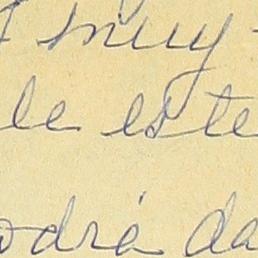 muy
le este
odrá da